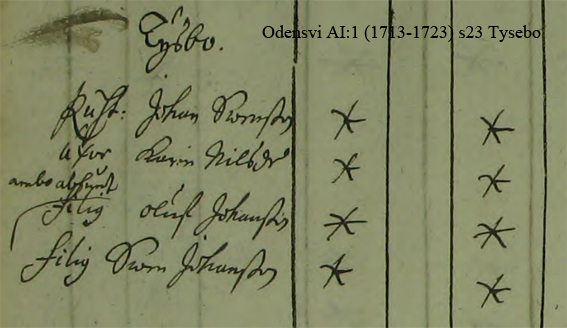 Tysbo.
Odensvi AI:1 (1713-1723) s23 Tysebo
Rust: Johan Swensson
uxor Karin Nilsdr
ambo absunt
filig Oluf Johansson
filig Swen Johansson